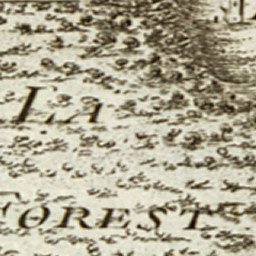 La
Forest